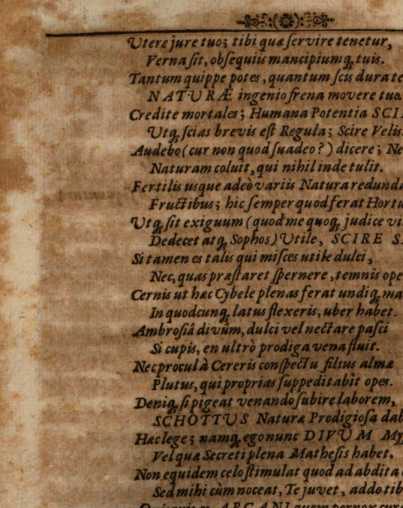 Utere jure tuo; tibi quæ ſervire tenetur,
Verna ſit, obſequiis mancipiumq́; tuis.
Tantum quippe potes, quantum ſcis dura te
NATURÆ ingenio frena movere tuo.
Credite mortales; Humana Potentia SCI
Utq́; ſcias brevis eſt Regula; Scire Velis
Audebo (cur non quod ſuadeo?) dicere; Ne
Naturam coluit, qui nihil inde tulit.
Fertilis usque adeò variis Natura redunda
Fructibus; hic ſemper quod ferat Hortu
Utq́; ſit exiguum (quod me quoq́; judice vi
Dedecet atq́; Sophos) Utile, SCIRE S
Si tamen es talis qui miſces utile dulci,
Nec, quas præſtaret ſpernere, temnis ope
Cernis ut hæc Cybele plenas ferat undiq́; ma
In quodcunq́; latus flexeris, uber habet.
Ambroſiâ divûm, dulci vel nectare paſci
Si cupis, en ultrò prodiga vena fluit.
Nec procul à Cereris conſpectu filius almæ
Plutus, qui proprias ſuppeditabit opes.
Deniq́; ſi pigeat venando ſubire laborem,
SCHOTTUS Naturæ Prodigioſa dab
Hæc lege; namq́; ego nunc DIVUM My
Vel quæ Secreti plena Matheſis habet.
Non equidem celo ſtimulat quod ad abdita
Sed mihi cùm noceat, Te juvet, addo tib
ARCANI